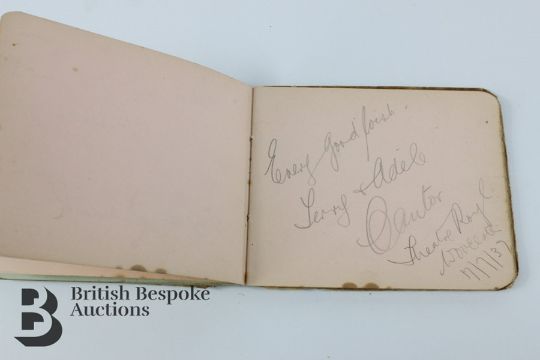 Every Good Wish.
Terry & Adéle
Cantor
Theatre Royal
17/7/37
British Bespoke
Auctions